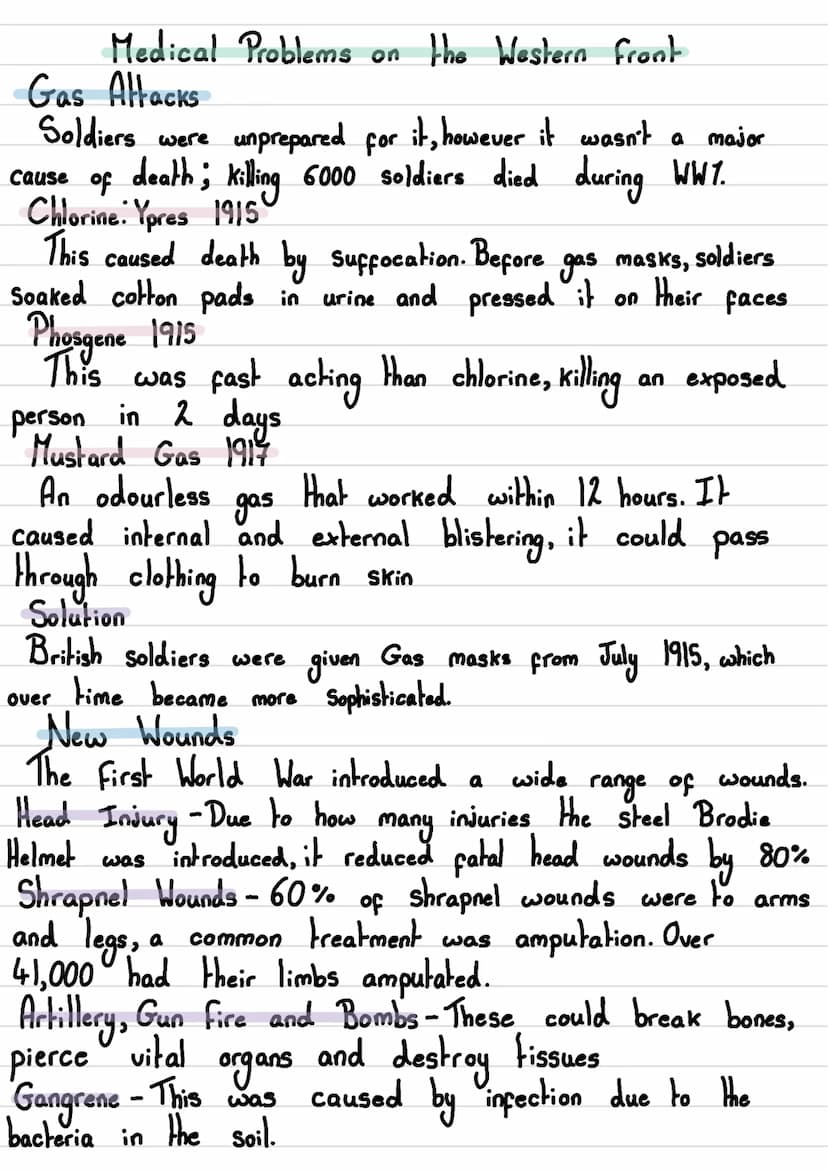 Medical Problems on the Western Front
Gas Attacks
Soldiers were unprepared for it, however it wasn't a major
cause of death; killing 6000 soldiers died during WW1.
Chlorine: Ypres 1915
This caused death by suffocation. Before gas masks, soldiers
soaked cotton pads in urine and pressed it on their faces
Phosgene 1915
This was fast acting than chlorine, killing an exposed
person in 2 days
Mustard Gas 1917
An odourless gas that worked within 12 hours. It
caused internal and external blistering, it could pass
through clothing to burn skin
Solution
British soldiers were given Gas masks from July 1915, which
over time became more sophisticated.
New Wounds
The First World War introduced a wide range of wounds.
Head Injury - Due to how many injuries the steel Brodie
Helmet was introduced, it reduced fatal head wounds by 80%
Shrapnel Wounds - 60% of shrapnel wounds were to arms
and legs, a common treatment was amputation. Over
41,000 had their limbs amputated.
Artillery, Gun fire and Bombs - These could break bones,
pierce vital organs and destroy tissues
Gangrene - This was caused by infection due to the
bacteria in the soil.